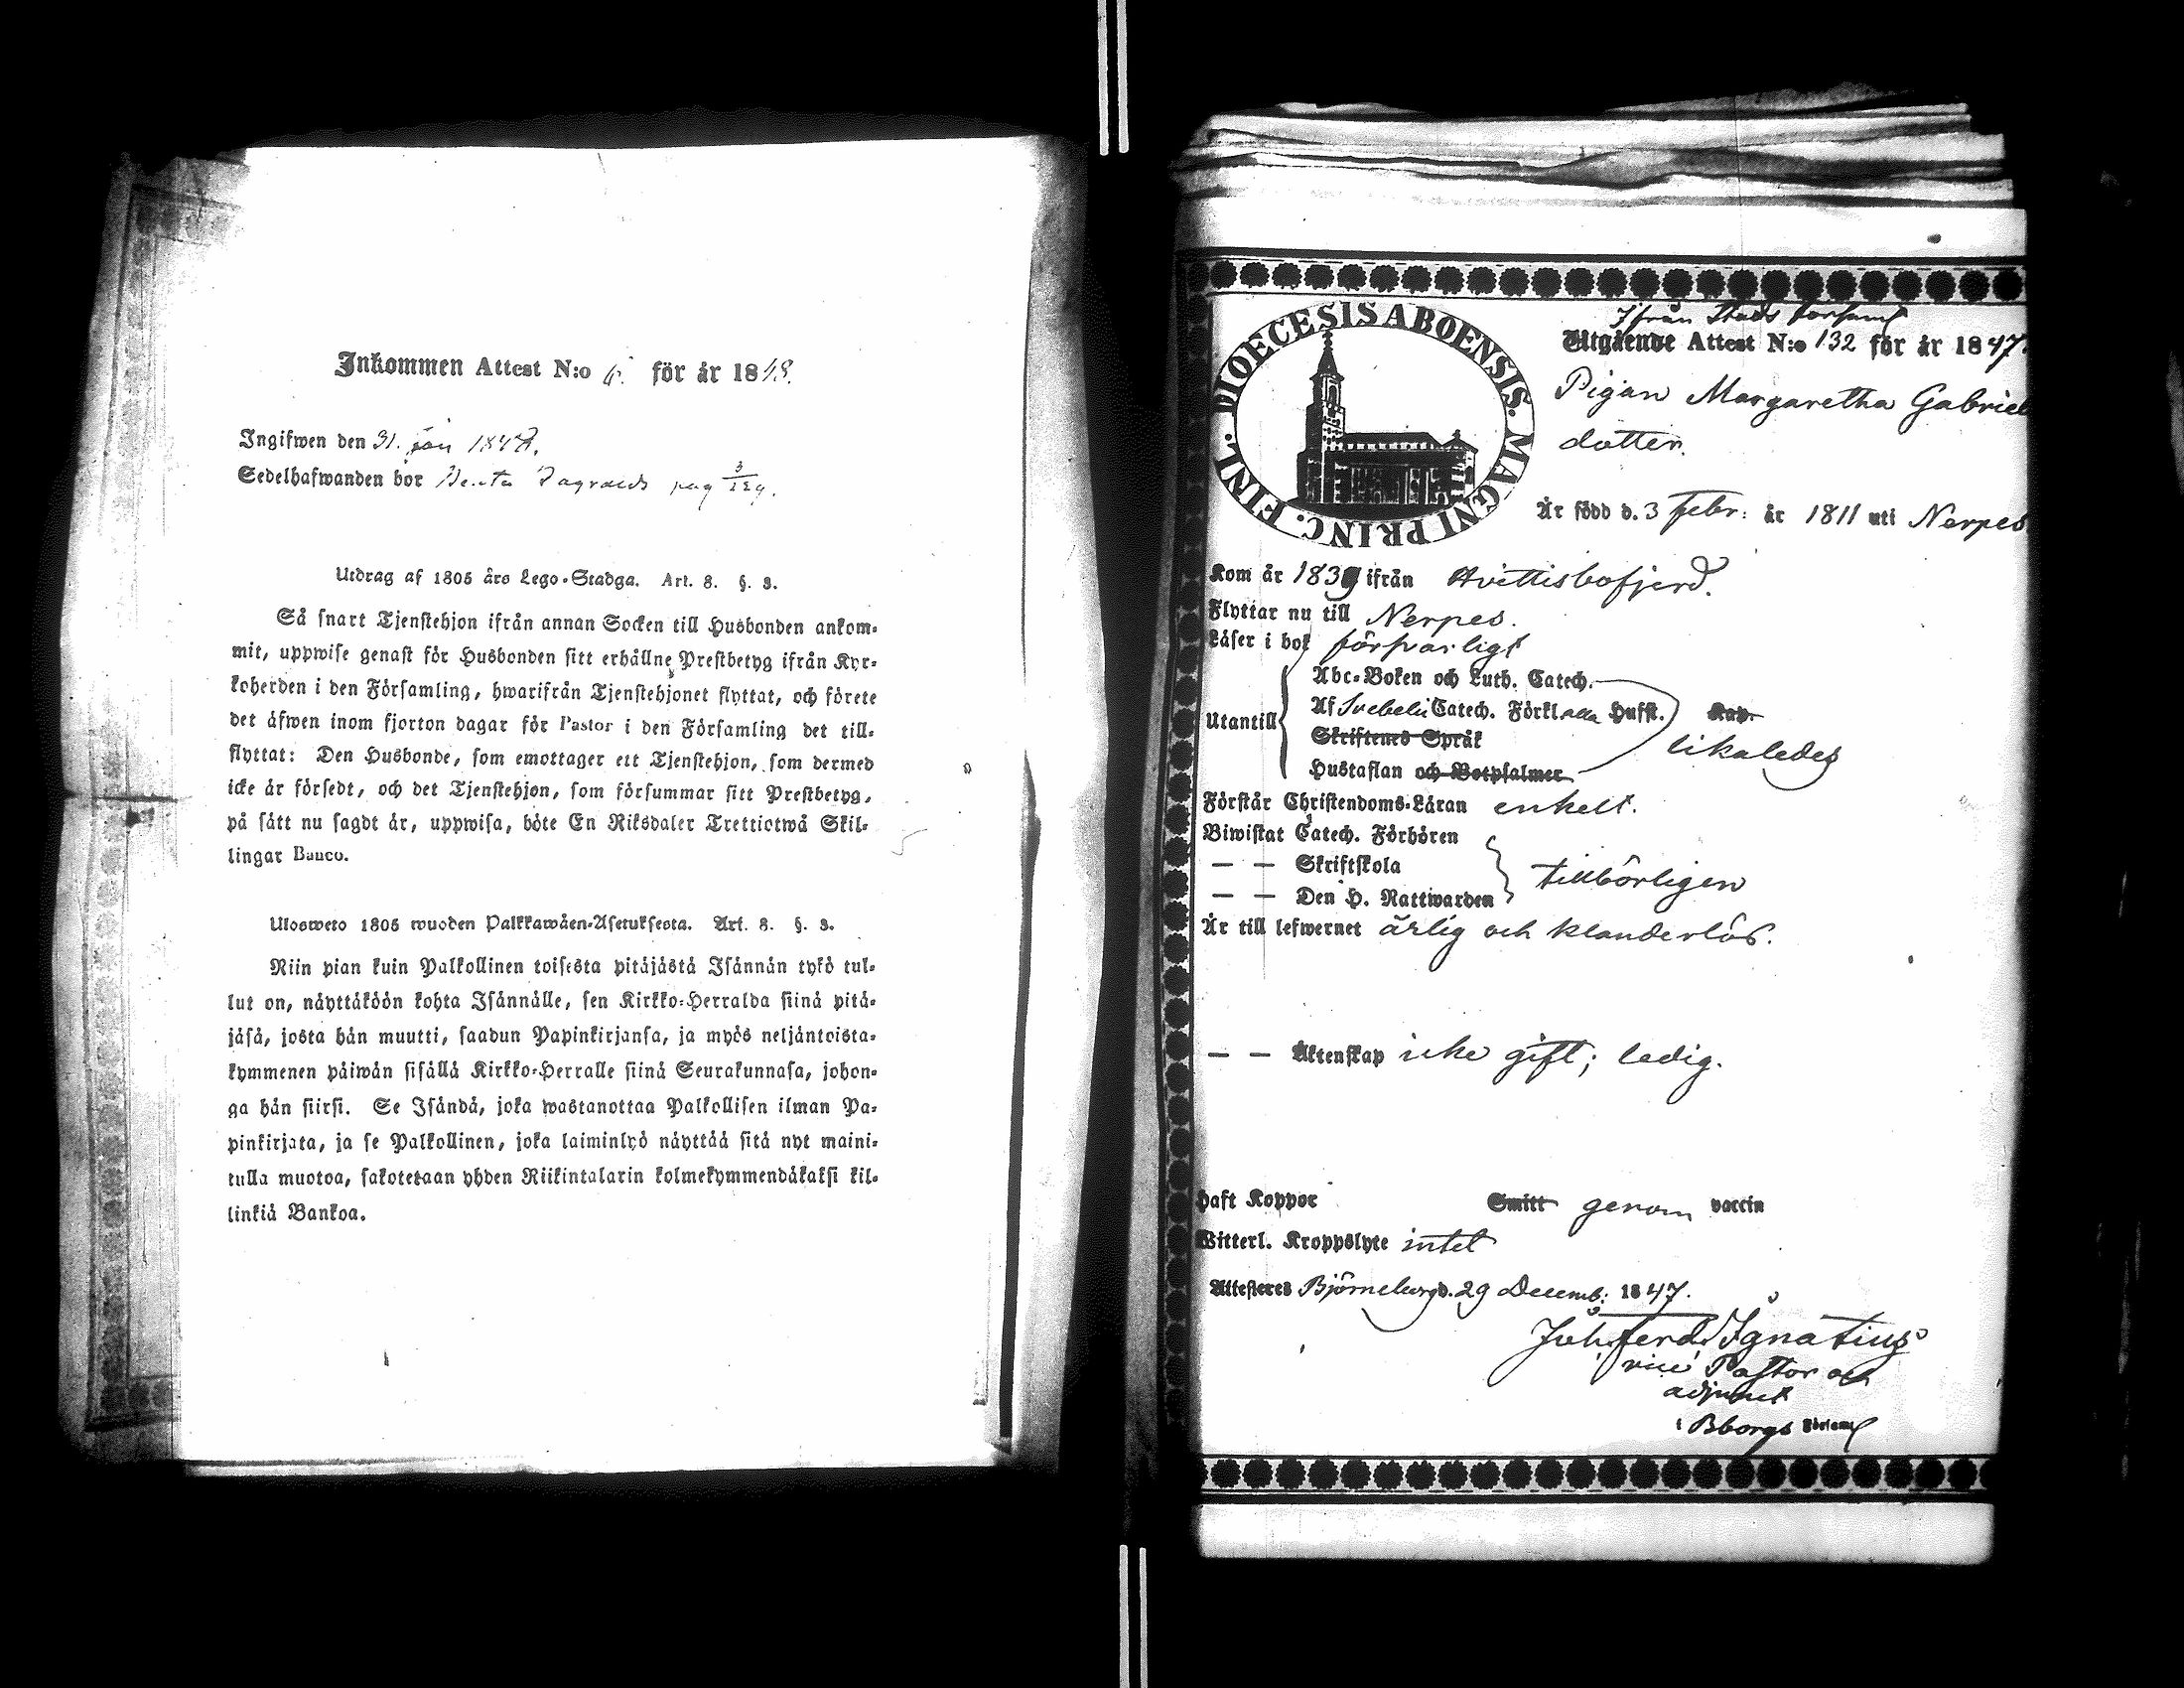 Inkommen Attest N:o 6. för år 1848.
Ingifwen den 31. jan 1848.
Sedelhafwanden bor pag 3/129.
Utdrag af 1805 års Lego-Stadga. Art. 8. §. 3.
Så snart Tjenstehjon ifrån annan Socken till Husbonden ankom-
mit, uppwise genast för Husbonden sitt erhållne Prestbetyg ifrån Kyr-
koherden i den Församling, hwarifrån Tjenstehjonet flyttat, och förete
det äfwen inom fjorton dagar för Pastor i den Församling det till-
flyttat: Den Husbonde, som emottager ett Tjenstehjon, som dermed
icke är försedt, och det Tjenstehjon, som försummar sitt Prestbetyg,
på sätt nu sagdt är, uppwisa, böte En Riksdaler Trettiotwå Skil-
lingar Banco.
Ulosweto 1805 wuoden Palkkawäen-Asetuksesta. Art. 8. §. 3.
Niin pian kuin Palkollinen toisesta pitäjästä Isännän tykö tul-
lut on, näyttäköön kohta Isännälle, sen Kirkko-Herralda siinä pitä-
jäsä, josta hän muutti, saadun Papinkirjansa, ja myös neljäntoista-
kymmenen päiwän sisällä Kirkko-Herralle siinä Seurakunnasa, johon-
ga hän siirsi. Se Isändä, joka wastanottaa Palkollisen ilman Pa-
pinkirjata, ja se Palkollinen, joka laiminlyö näyttää sitä nyt maini-
tulla muotoa, sakotetaan yhden Riikintalarin kolmekymmendäkaksi kil-
linkiä Bankoa.
DIOECESIS ABOENSIS. MAGNI PRINC. FINL.
Ifrån Stads församl
Utgående Attest N:o 132 för år 1847.
Pigan Margaretha Gabriel
dotter.
Är född d. 3 Febr: år 1811 uti Nerpes
Kom år 1839 ifrån Hvittisbofjerd.
Flyttar nu till Nerpes.
Läser i bok försvarligt
Utantill
Abc-Boken och Luth. Catech.
Af Svebelii Catech. Förkl alla Hufst. Kap.
Skriftenes Språk
likaledes
Hustaflan och Botpsalmer
Förstår Christendoms-Läran enkelt.
Biwistat Catech. Förhören
— — Skriftskola
tillbörligen
— — Den H. Nattwarden
Är till lefwernet ärlig och klanderlös.
— — Äktenskap icke gift; ledig.
Haft Koppor Smitt genom vaccin
Witterl. Kroppslyte intet
Attesteres Björneborg d. 29 Decemb: 1847.
Joh. Ferd. Ignatius
vice Pastor och
adjunct
i Bborgs Församl